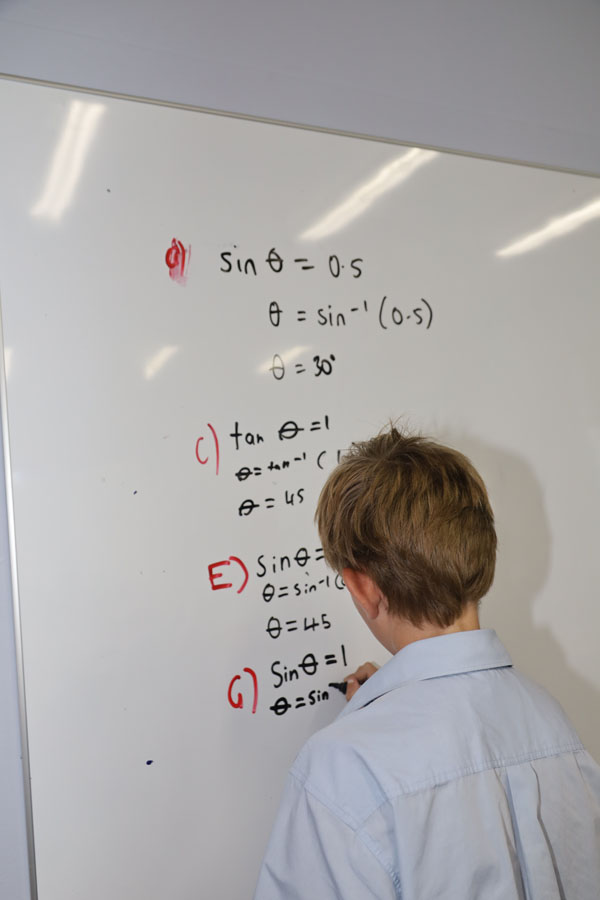 a) sin θ = 0.5
θ = sin⁻¹ (0.5)
θ = 30°
C) tan θ = 1
θ = tan⁻¹ (1
θ = 45
E) Sin θ =
θ = sin⁻¹ (
θ = 45
G) Sin θ = 1
θ = sin